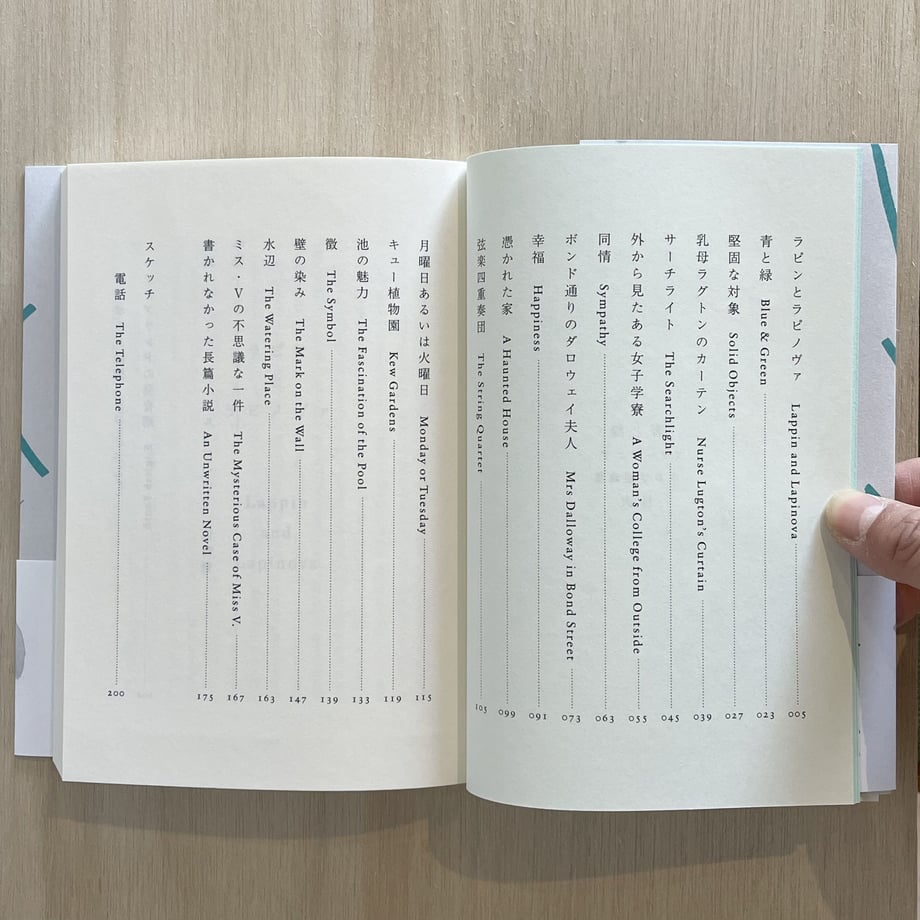 ラピンとラピノヴァ Lappin and Lapinova 005
青と緑 Blue & Green 023
堅固な対象 Solid Objects 027
乳母ラグトンのカーテン Nurse Lugton's Curtain 039
サーチライト The Searchlight 045
外から見たある女子学寮 A Woman's College from Outside 055
同情 Sympathy 063
ボンド通りのダロウェイ夫人 Mrs Dalloway in Bond Street 073
幸福 Happiness 091
憑かれた家 A Haunted House 099
弦楽四重奏団 The String Quartet 105
月曜日あるいは火曜日 Monday or Tuesday 115
キュー植物園 Kew Gardens 119
池の魅力 The Fascination of the Pool 133
徴 The Symbol 139
壁の染み The Mark on the Wall 147
水辺 The Watering Place 163
ミス・Vの不思議な一件 The Mysterious Case of Miss V. 167
書かれなかった長篇小説 An Unwritten Novel 175
スケッチ
電話 The Telephone 200